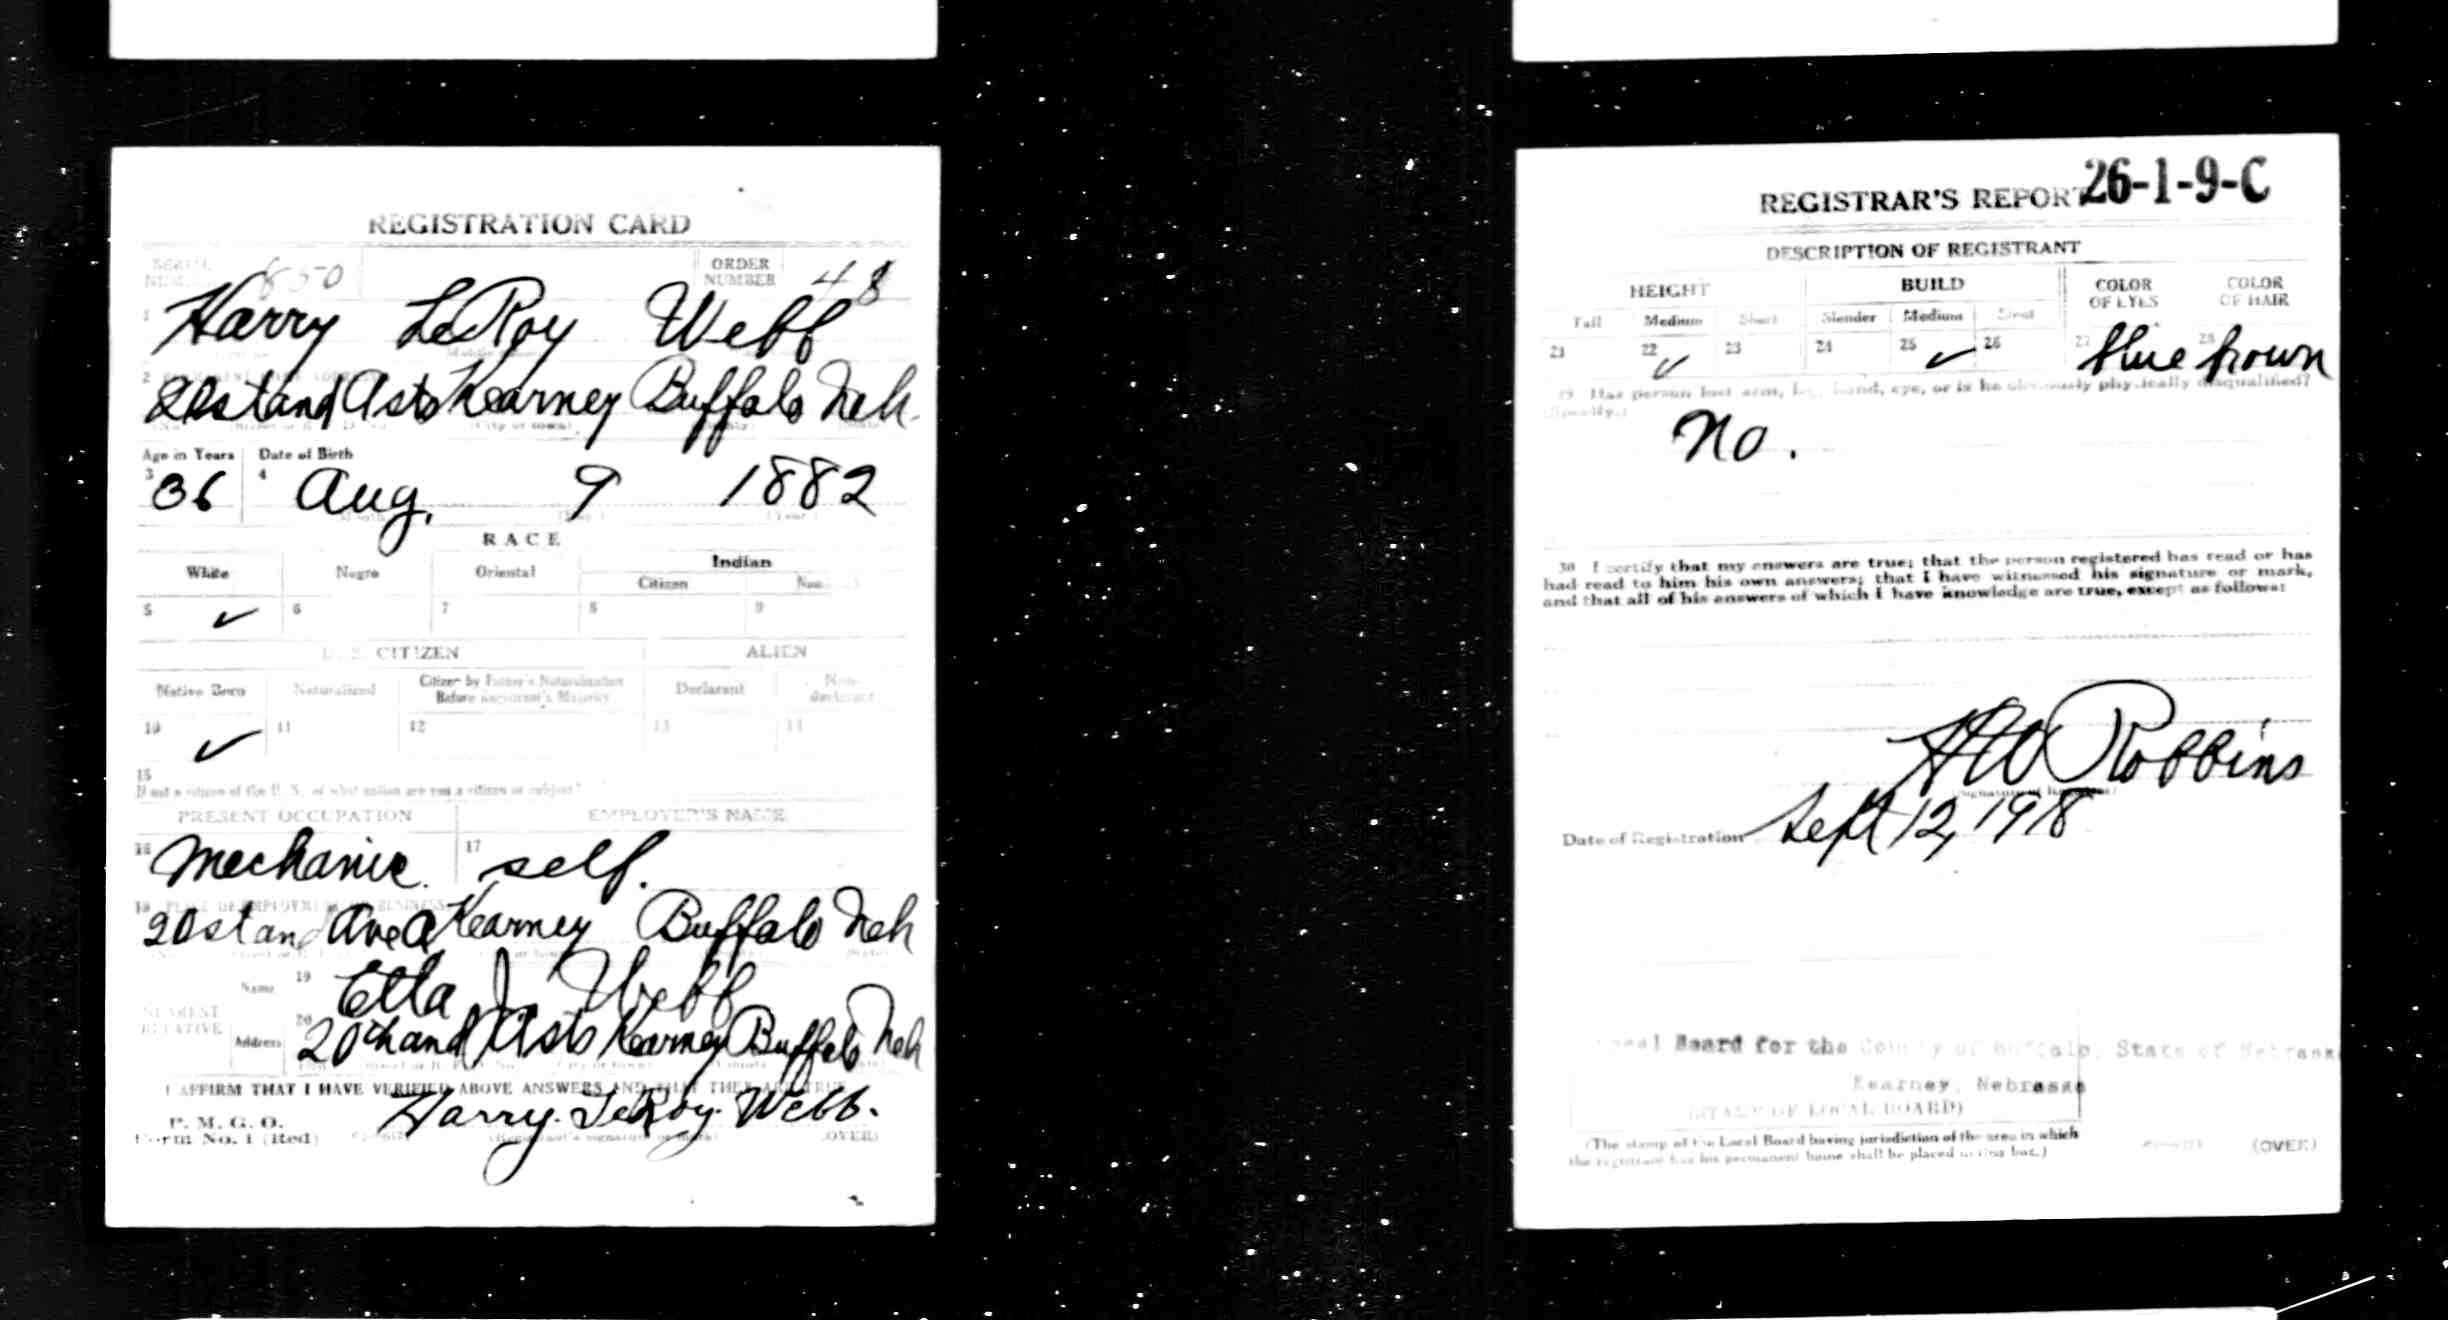 REGISTRATION CARD
SERIAL NUMBER 650 ORDER NUMBER 48
1 Harry LeRoy Webb
2
20st and Kearney Buffalo Neb.
Age in Years Date of Birth
3 36 4 Aug. 9 1882
RACE
White Negro Oriental Indian
Citizen
5 ✓ 6 7 8 9
U. S. CITIZEN ALIEN
Native Born Naturalized Citizen by Father's Naturalization Before Registrant's Majority Declarant Non-declarant
10 ✓ 11 12 13 14
15
If not a citizen of the U. S., of what nation are you a citizen or subject?
PRESENT OCCUPATION EMPLOYER'S NAME
16 Mechanic. 17 self.
18 PLACE OF EMPLOYMENT OR BUSINESS
20st and Ave A Kearney Buffalo Neb
NEAREST RELATIVE
Name 19 Etta J Webb
Address 20 20th and Kearney Buffalo Neb
I AFFIRM THAT I HAVE VERIFIED ABOVE ANSWERS AND THAT THEY ARE TRUE
P. M. G. O.
Form No. 1 (Red) Harry LeRoy Webb.
(Registrant's signature or mark) (OVER)
REGISTRAR'S REPORT 26-1-9-C
DESCRIPTION OF REGISTRANT
HEIGHT BUILD COLOR OF EYES COLOR OF HAIR
Tall Medium Short Slender Medium Stout
21 22 ✓ 23 24 25 ✓ 26 27 blue 28 brown
29 Has person lost arm, leg, hand, eye, or is he obviously physically disqualified?
(Specify.)
No.
30 I certify that my answers are true; that the person registered has read or has
had read to him his own answers; that I have witnessed his signature or mark,
and that all of his answers of which I have knowledge are true, except as follows:
Robbins
(Signature of Registrar)
Date of Registration Sept 12, 1918
Local Board for the County of Buffalo, State of Nebraska
Kearney, Nebraska
(STAMP OF LOCAL BOARD)
(The stamp of the Local Board having jurisdiction of the area in which
the registrant has his permanent home shall be placed in this box.)
(OVER)